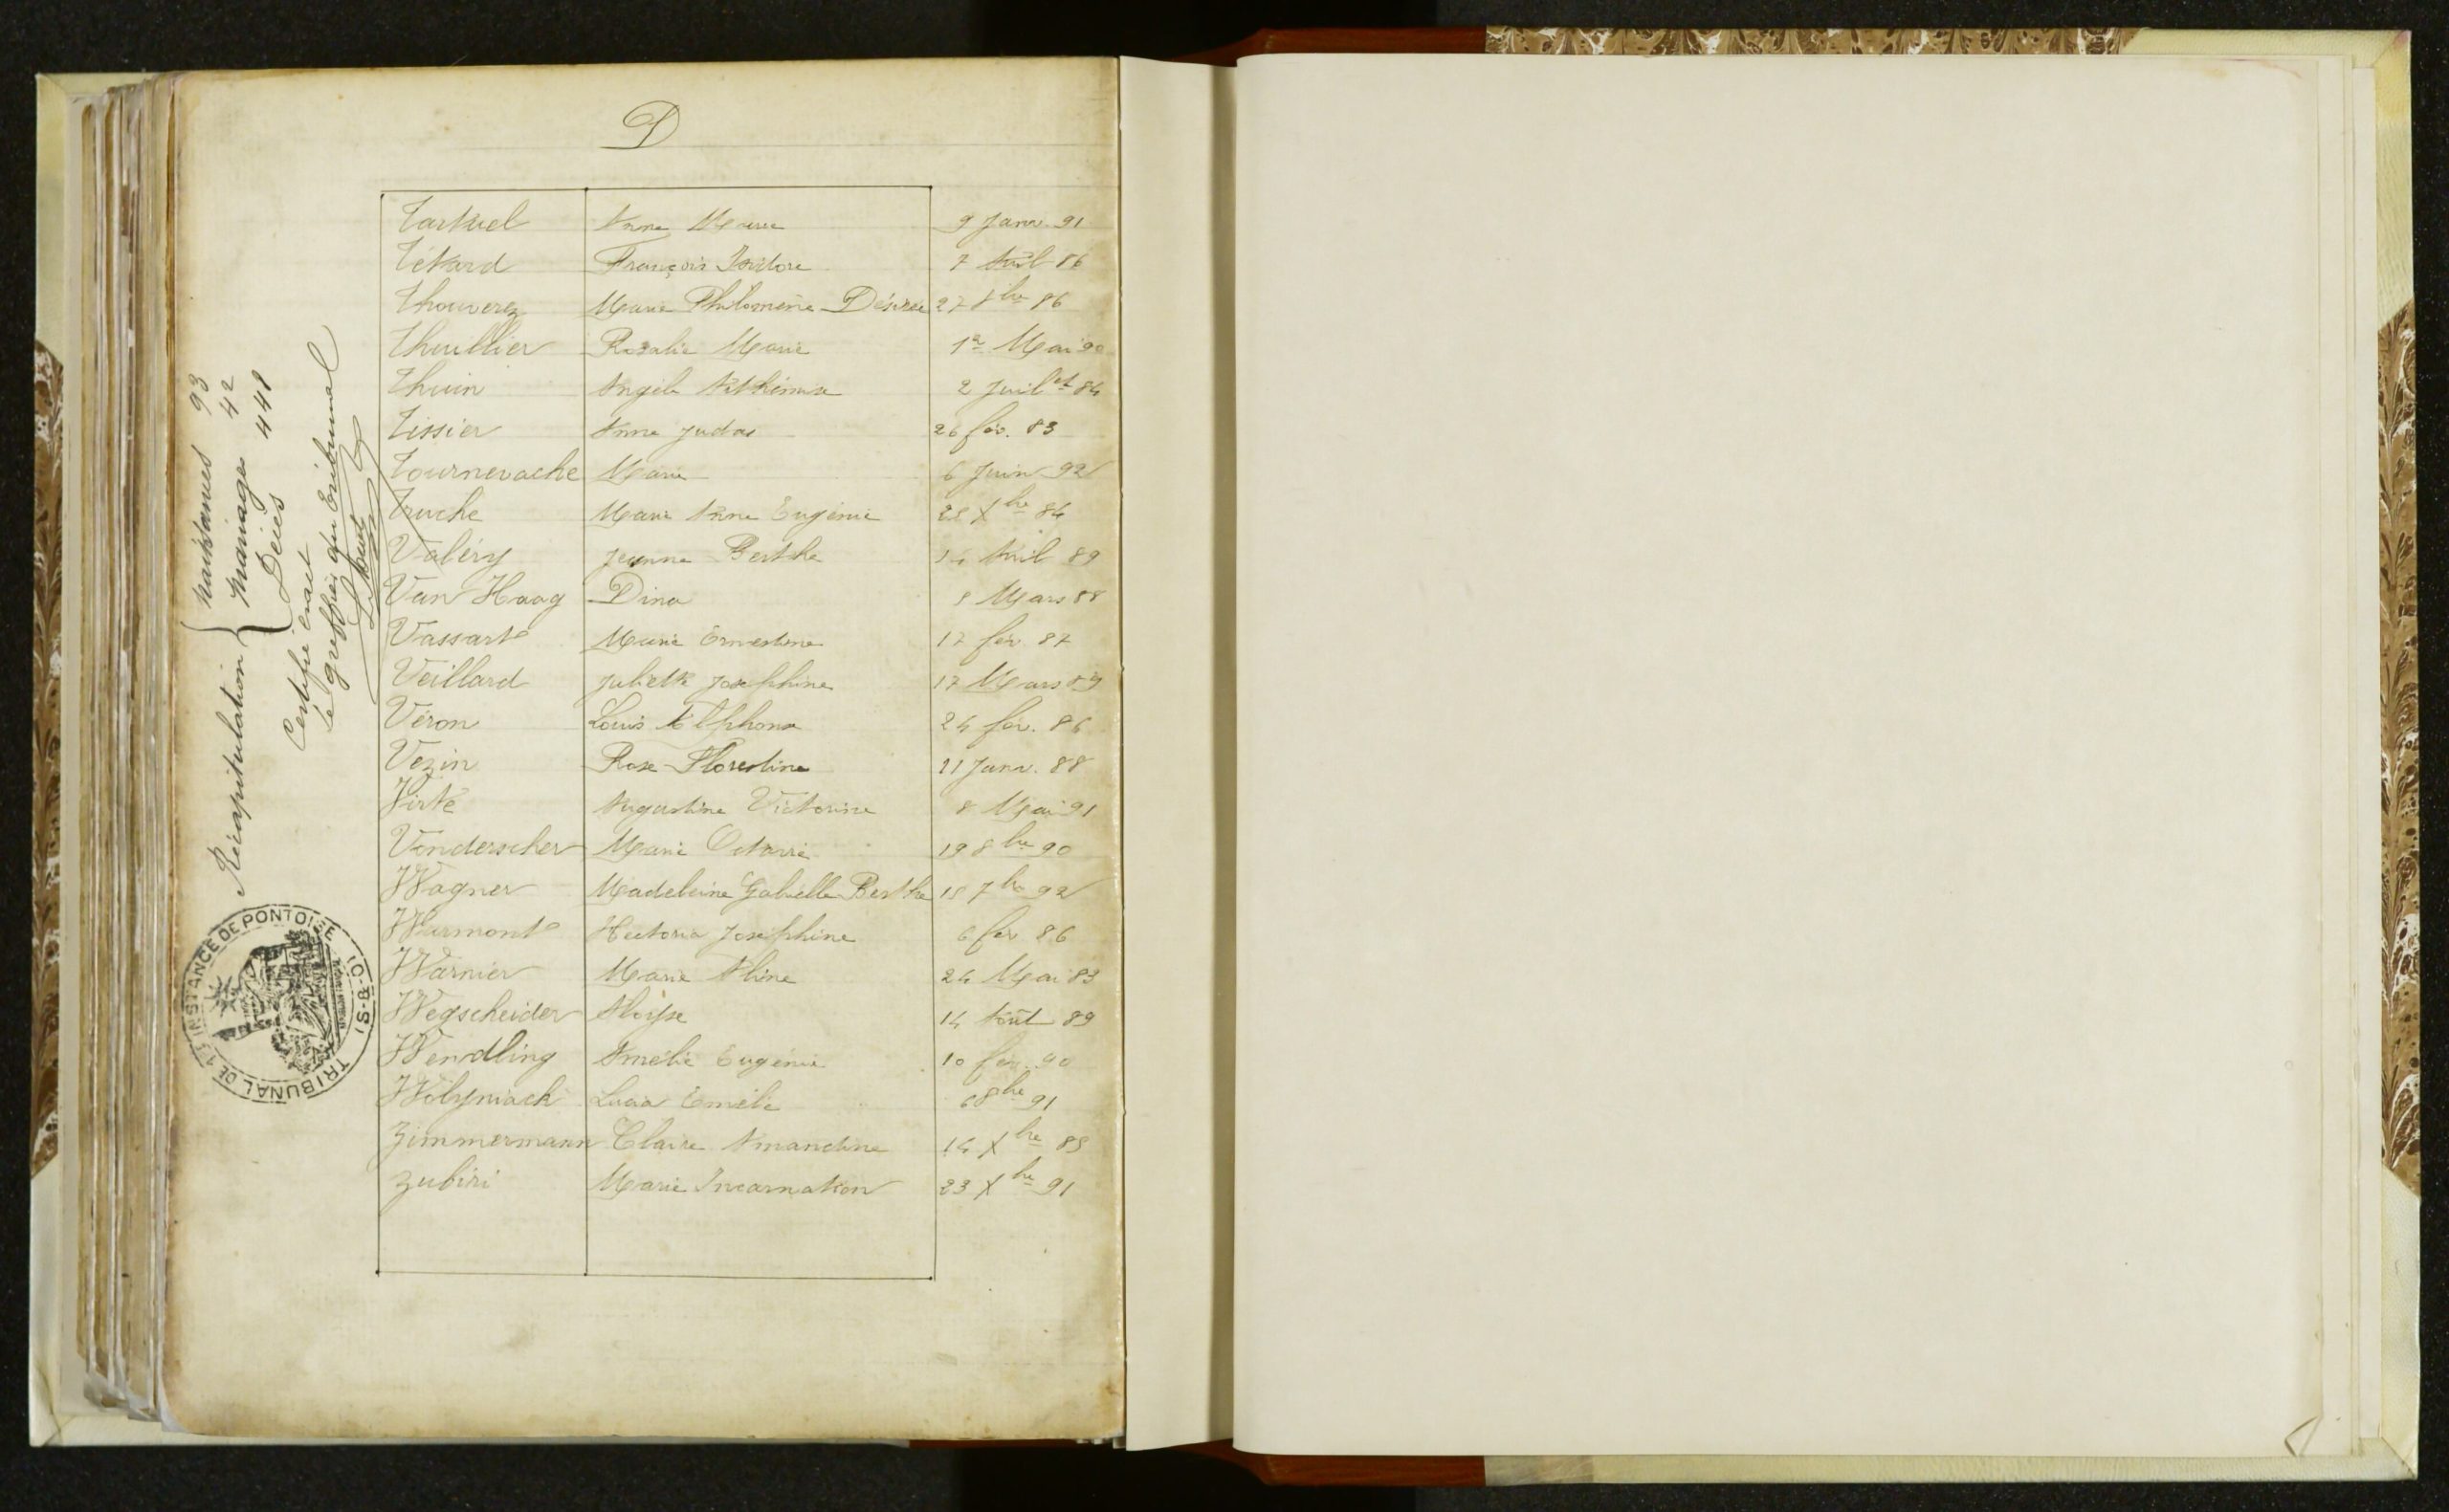 D
Tarkuel Anne Marie 9 Janv. 91
Tétard François Isidore 7 Avril 86
Thouverez Marie Philomène Désirée 27 8bre 86
Thuillier Rosalie Marie 1er Mai 90
Thuin Angèle Arthémise 2 Juillet 84
Tissier Anne Judas 26 fév. 83
Tournevache Marie 6 Juin 92
Truche Marie Anne Eugénie 28 Xbre 84
Valéry Jeanne Berthe 14 Avril 89
Van Haag Dina 8 Mars 88
Vassart Marie Ernestine 17 fév. 87
Veillard Juliette Joséphine 17 Mars 89
Véron Louis Alphonse 24 fév. 86
Vézin Rose Florestine 21 Janv. 88
Virte Augustine Victorine 8 Mai 91
Vonderscher Marie Octavie 19 8bre 90
Wagner Madeleine Gabrielle Berthe 18 7bre 92
Warmont Hectoria Joséphine 6 fév 86
Warnier Marie Aline 24 Mai 83
Wegscheider Aloïse 14 Août 89
Wendling Amélie Eugénie 10 fév. 90
Wolyniach Lucia Emélie 6 8bre 91
Zimmermann Claire Amandine 14 Xbre 89
Zubiri Marie Incarnation 23 Xbre 91
Récapitulation
Naissances 93
Mariages 42
Décès 441
Certifié exact
Le greffier du tribunal
TRIBUNAL DE 1ère INSTANCE DE PONTOISE (S-&-O)